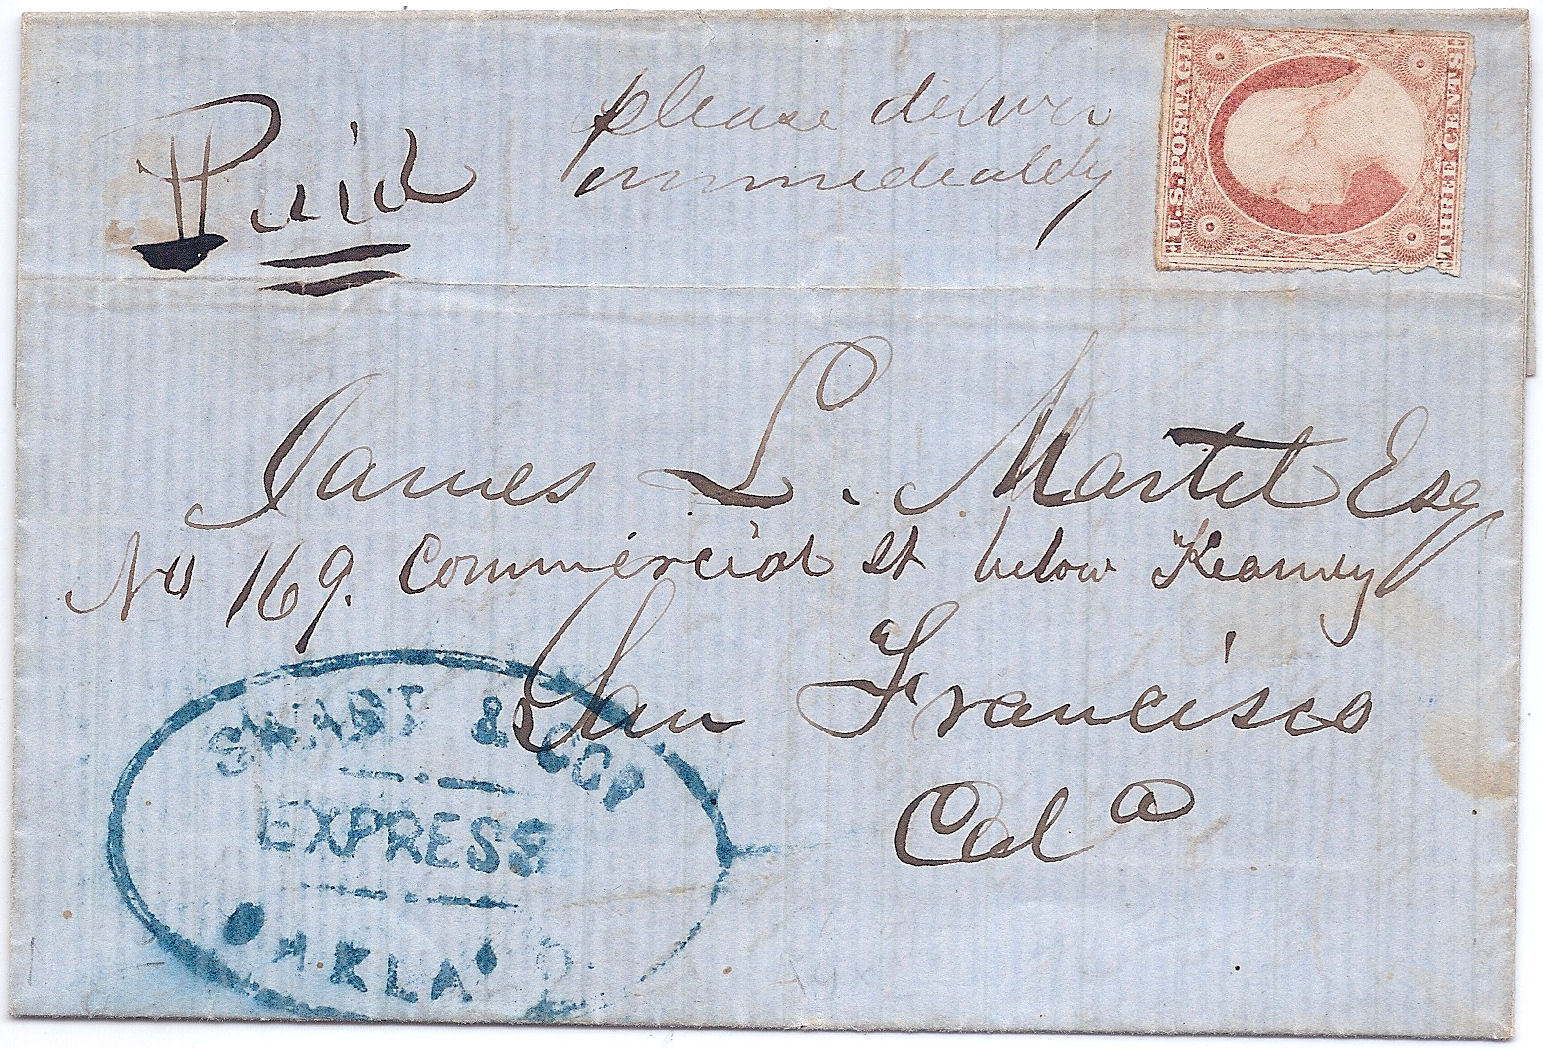 Paid
please deliver
immediately
U.S. POSTAGE
THREE CENTS
James L. Martel Esq
No 169. Commercial St below Kearny
San Francisco
Cala
& COS
EXPRESS
OAKLA D